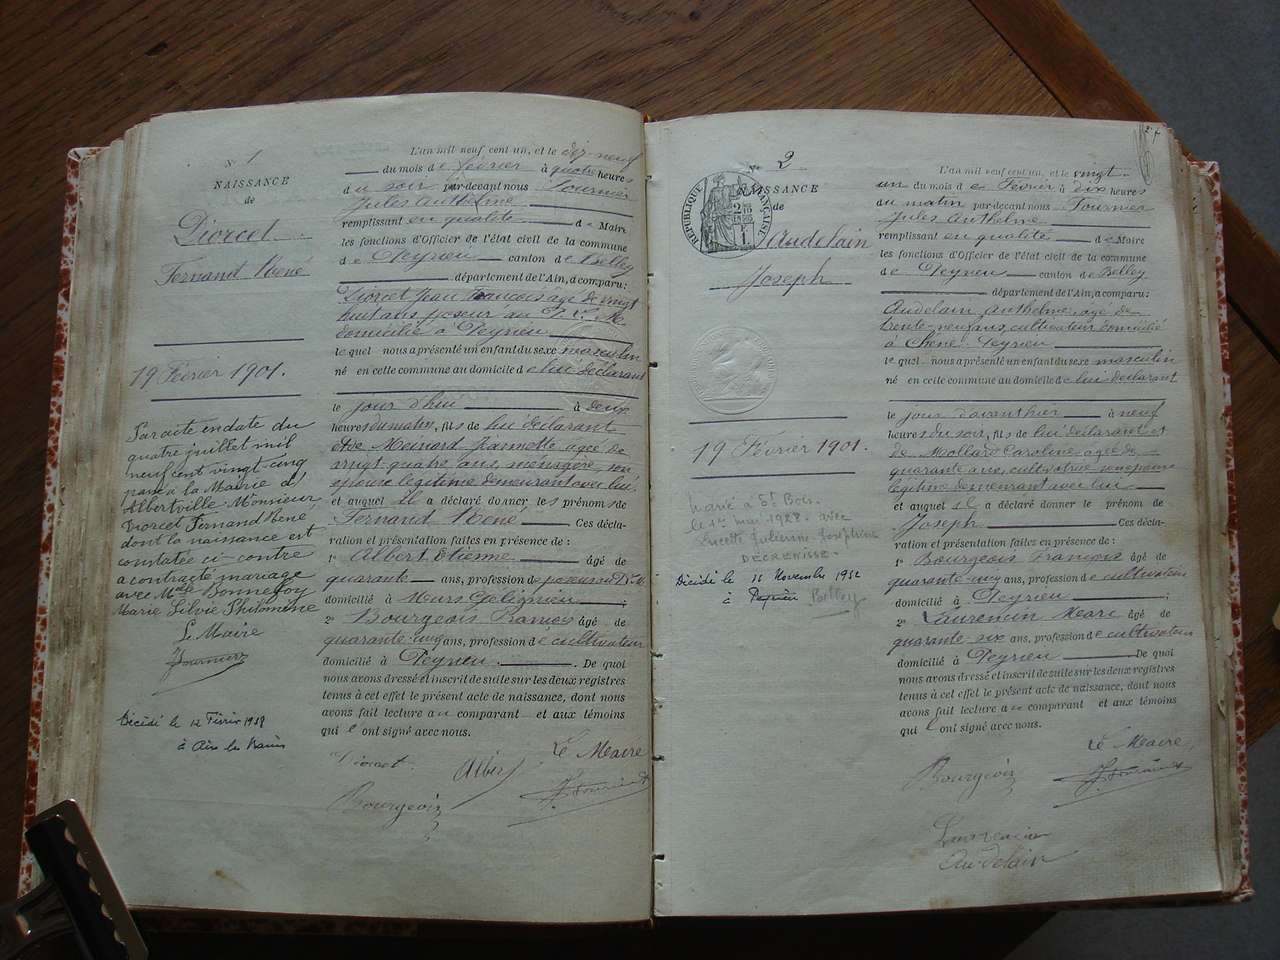 N° 1
NAISSANCE
de
Diorcet
Fernand René
19 Février 1901.
Par acte en date du
quatre juillet mil
neuf cent vingt-cinq
passé à la Mairie d'
Albertville Monsieur
Diorcet Fernand René,
dont la naissance est
constatée ci-contre
a contracté mariage
avec Mlle Bonnefoy
Marie Silvie Philomène
Le Maire
Fournier
Décédé le 12 Février 1958
à Aix les Bains
L'an mil neuf cent un, et le dix-neuf
du mois de février à quatre heures
du soir par-devant nous Fournier
Jules Anthelme
remplissant en qualité de Maire
les fonctions d'Officier de l'état civil de la commune
de Peyrieu canton de Belley
département de l'Ain, a comparu:
Diorcet Jean François âgé de vingt
huit ans poseur au P. L. M.
domicilié à Peyrieu
lequel nous a présenté un enfant du sexe masculin
né en cette commune au domicile de lui déclarant
le jour d'hui à deux
heures du matin, fils de lui déclarant
et de Meinard Jeannette âgée de
vingt quatre ans, ménagère son
épouse légitime demeurant avec lui,
et auquel il a déclaré donner les prénoms de
Fernand René Ces décla-
ration et présentation faites en présence de :
1° Albert Etienne âgé de
quarante ans, profession de poseur au P.L.M.
domicilié à Murs Gélignieu ;
2° Bourgeois François âgé de
quarante-un ans, profession de cultivateur
domicilié à Peyrieu. De quoi
nous avons dressé et inscrit de suite sur les deux registres
tenus à cet effet le présent acte de naissance, dont nous
avons fait lecture au comparant et aux témoins
qui l'ont signé avec nous.
Diorcet Albert Le Maire
Bourgeois J. Fournier
N° 2
NAISSANCE
de
RÉPUBLIQUE FRANÇAISE
Audelain
Joseph
19 Février 1901.
Marié à St Bois.
le 1er mai 1928 avec
Lucette Julienne Joséphine
DÉCRENISSE.
Décédé le 16 Novembre 1952
à Peyrieu Belley
L'an mil neuf cent un, et le vingt-
un du mois de Février à dix heures
du matin par-devant nous Fournier
Jules Anthelme
remplissant en qualité de Maire
les fonctions d'Officier de l'état civil de la commune
de Peyrieu canton de Belley
département de l'Ain, a comparu:
Audelain Anthelme âgé de
trente-neuf ans, cultivateur domicilié
à Chêne-Peyrieu
lequel nous a présenté un enfant du sexe masculin
né en cette commune au domicile de lui déclarant
le jour d'avant hier à neuf
heures du soir, fils de lui déclarant et
de Mollard Caroline âgée de
quarante ans, cultivatrice son épouse
légitime demeurant avec lui
et auquel il a déclaré donner le prénom de
Joseph Ces décla-
ration et présentation faites en présence de :
1° Bourgeois François âgé de
quarante-un ans, profession de cultivateur
domicilié à Peyrieu ;
2° Laurencin Marc âgé de
quarante-six ans, profession de cultivateur
domicilié à Peyrieu De quoi
nous avons dressé et inscrit de suite sur les deux registres
tenus à cet effet le présent acte de naissance, dont nous
avons fait lecture au comparant et aux témoins
qui l'ont signé avec nous.
Le Maire,
Bourgeois J. Fournier
Laurencin
Audelain